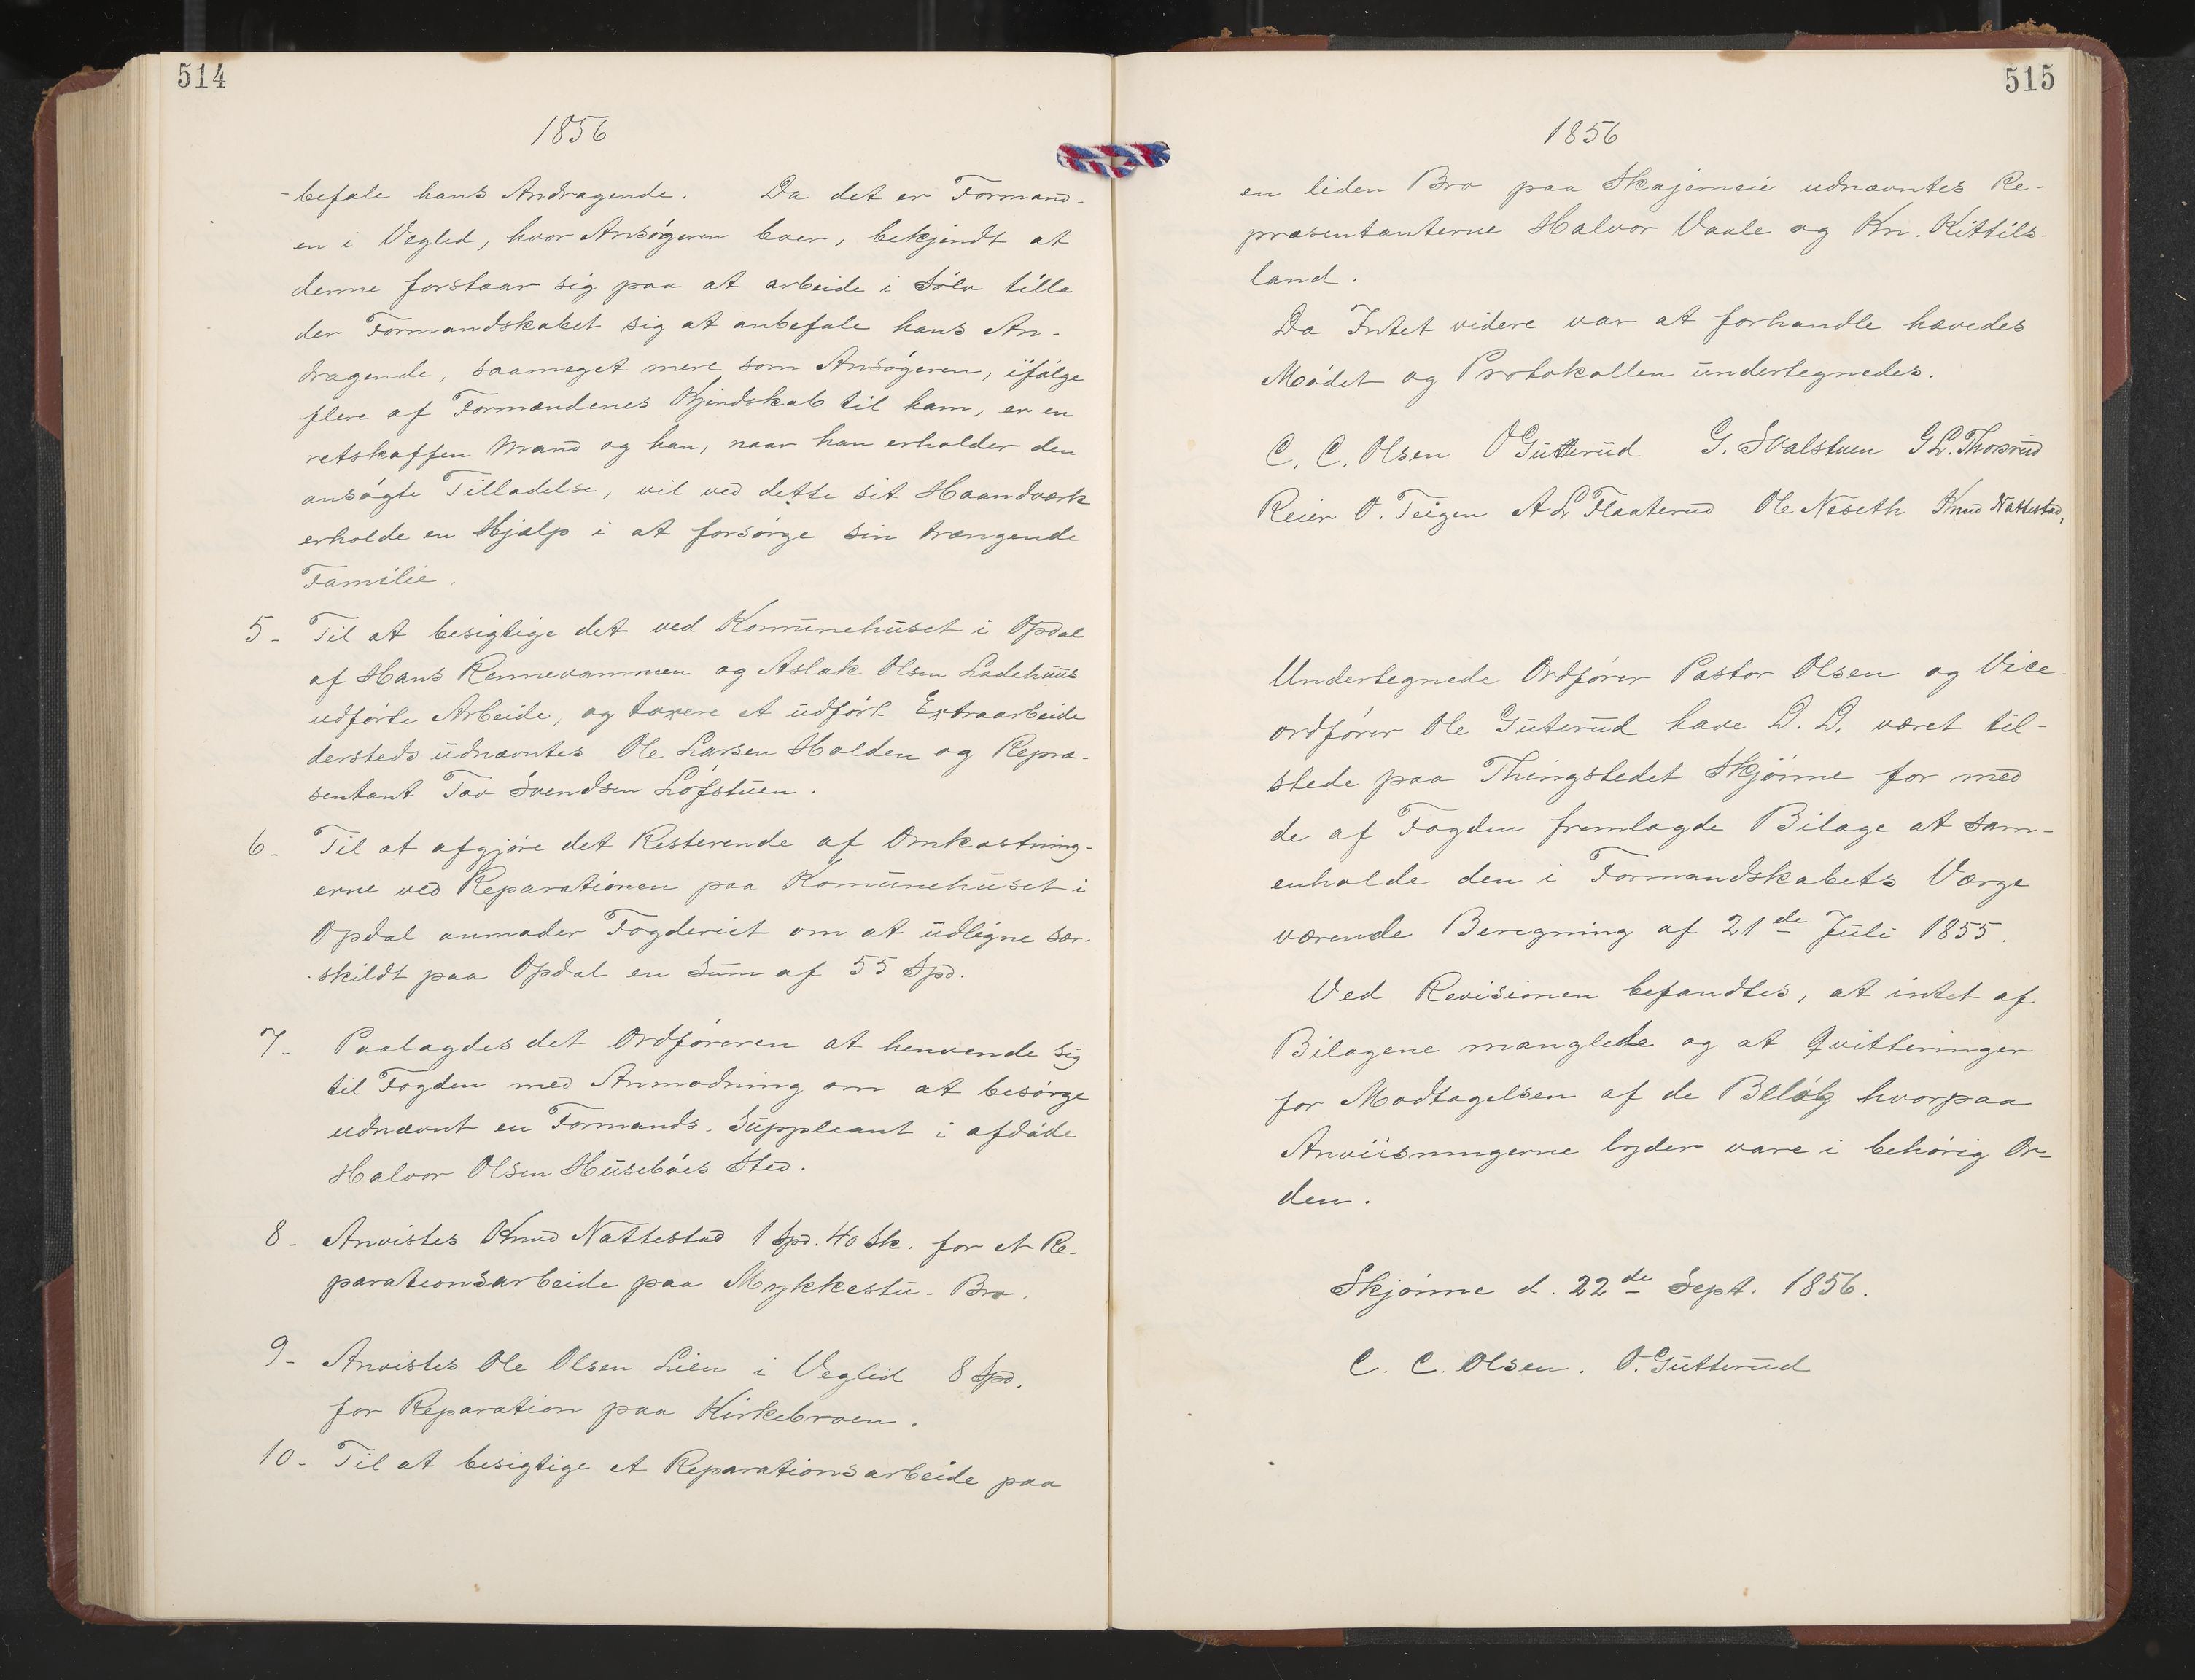 514
1856
-befale hans Andragende. Da det er Formænd-
en i Veglid, hvor Ansøgeren boer, bekjendt at
denne forstaar sig paa at arbeide i Sølv tilla
der Formandskabet sig at anbefale hans An-
dragende, saameget mere som Ansøgeren, ifølge
flere af Formændenes Kjendskab til ham, er en
retskaffen Mand og han, naar han erholder den
ansøgte Tilladelse, vil ved dette sit Haandværk
erholde en Hjælp i at forsørge sin trængende
Familie.
5- Til at besigtige det ved Komunehuset i Opdal
af Hans Rennevammen og Aslak Olsen Ladehuus
udførte Arbeide, og taxere et udført Extraarbeide
dersteds udnævntes Ole Larsen Holden og Repræ-
sentant Tov Svendsen Løfstuen.
6- Til at afgjøre det Resterende af Omkostning-
erne ved Reparationen paa Komunehuset i
Opdal anmoder Fogderiet om at udligne sær-
skildt paa Opdal en Sum af 55 Spd.
7- Paalagdes det Ordføreren at henvende sig
til Fogden med Anmodning om at besørge
udnævnt en Formands-Suppleant i afdøde
Halvor Olsen Husebøes Sted.
8- Anvistes Knud Nattestad 1 Spd. 40 Sk. for et Re-
parationsarbeide paa Mykkestu-Bro.
9- Anvistes Ole Olsen Lien i Veglid 8 Spd.
for Reparation paa Kirkebroen.
10- Til at besigtige et Reparationsarbeide paa
515
1856
en liden Bro paa Skajemeie udnævntes Re-
præsentanterne Halvor Vaale og Kn. Kittils-
land.
Da Intet videre var at forhandle hævedes
Mødet og Protokollen undertegnedes.
C. C. Olsen O Gutterud G. Skalstuen G L. Thorsrud
Reier O. Teigen A L Flaaterud Ole Neseth Knud Nattestad,
Undertegnede Ordfører Pastor Olsen og Vice-
ordfører Ole Guterud have D. D. været til-
stede paa Thingstedet Skjønne for med
de af Fogden fremlagde Bilage at sam-
enholde den i Formandskabets Værge
værende Beregning af 21de Juli 1855.
Ved Revisionen befandtes, at intet af
Bilagene manglede og at Qvitteringer
for Modtagelsen af de Beløb hvorpaa
Anviisningerne lyder vare i behørig Or-
den.
Skjønne d. 22de Sept. 1856.
C. C. Olsen. O. Gutterud